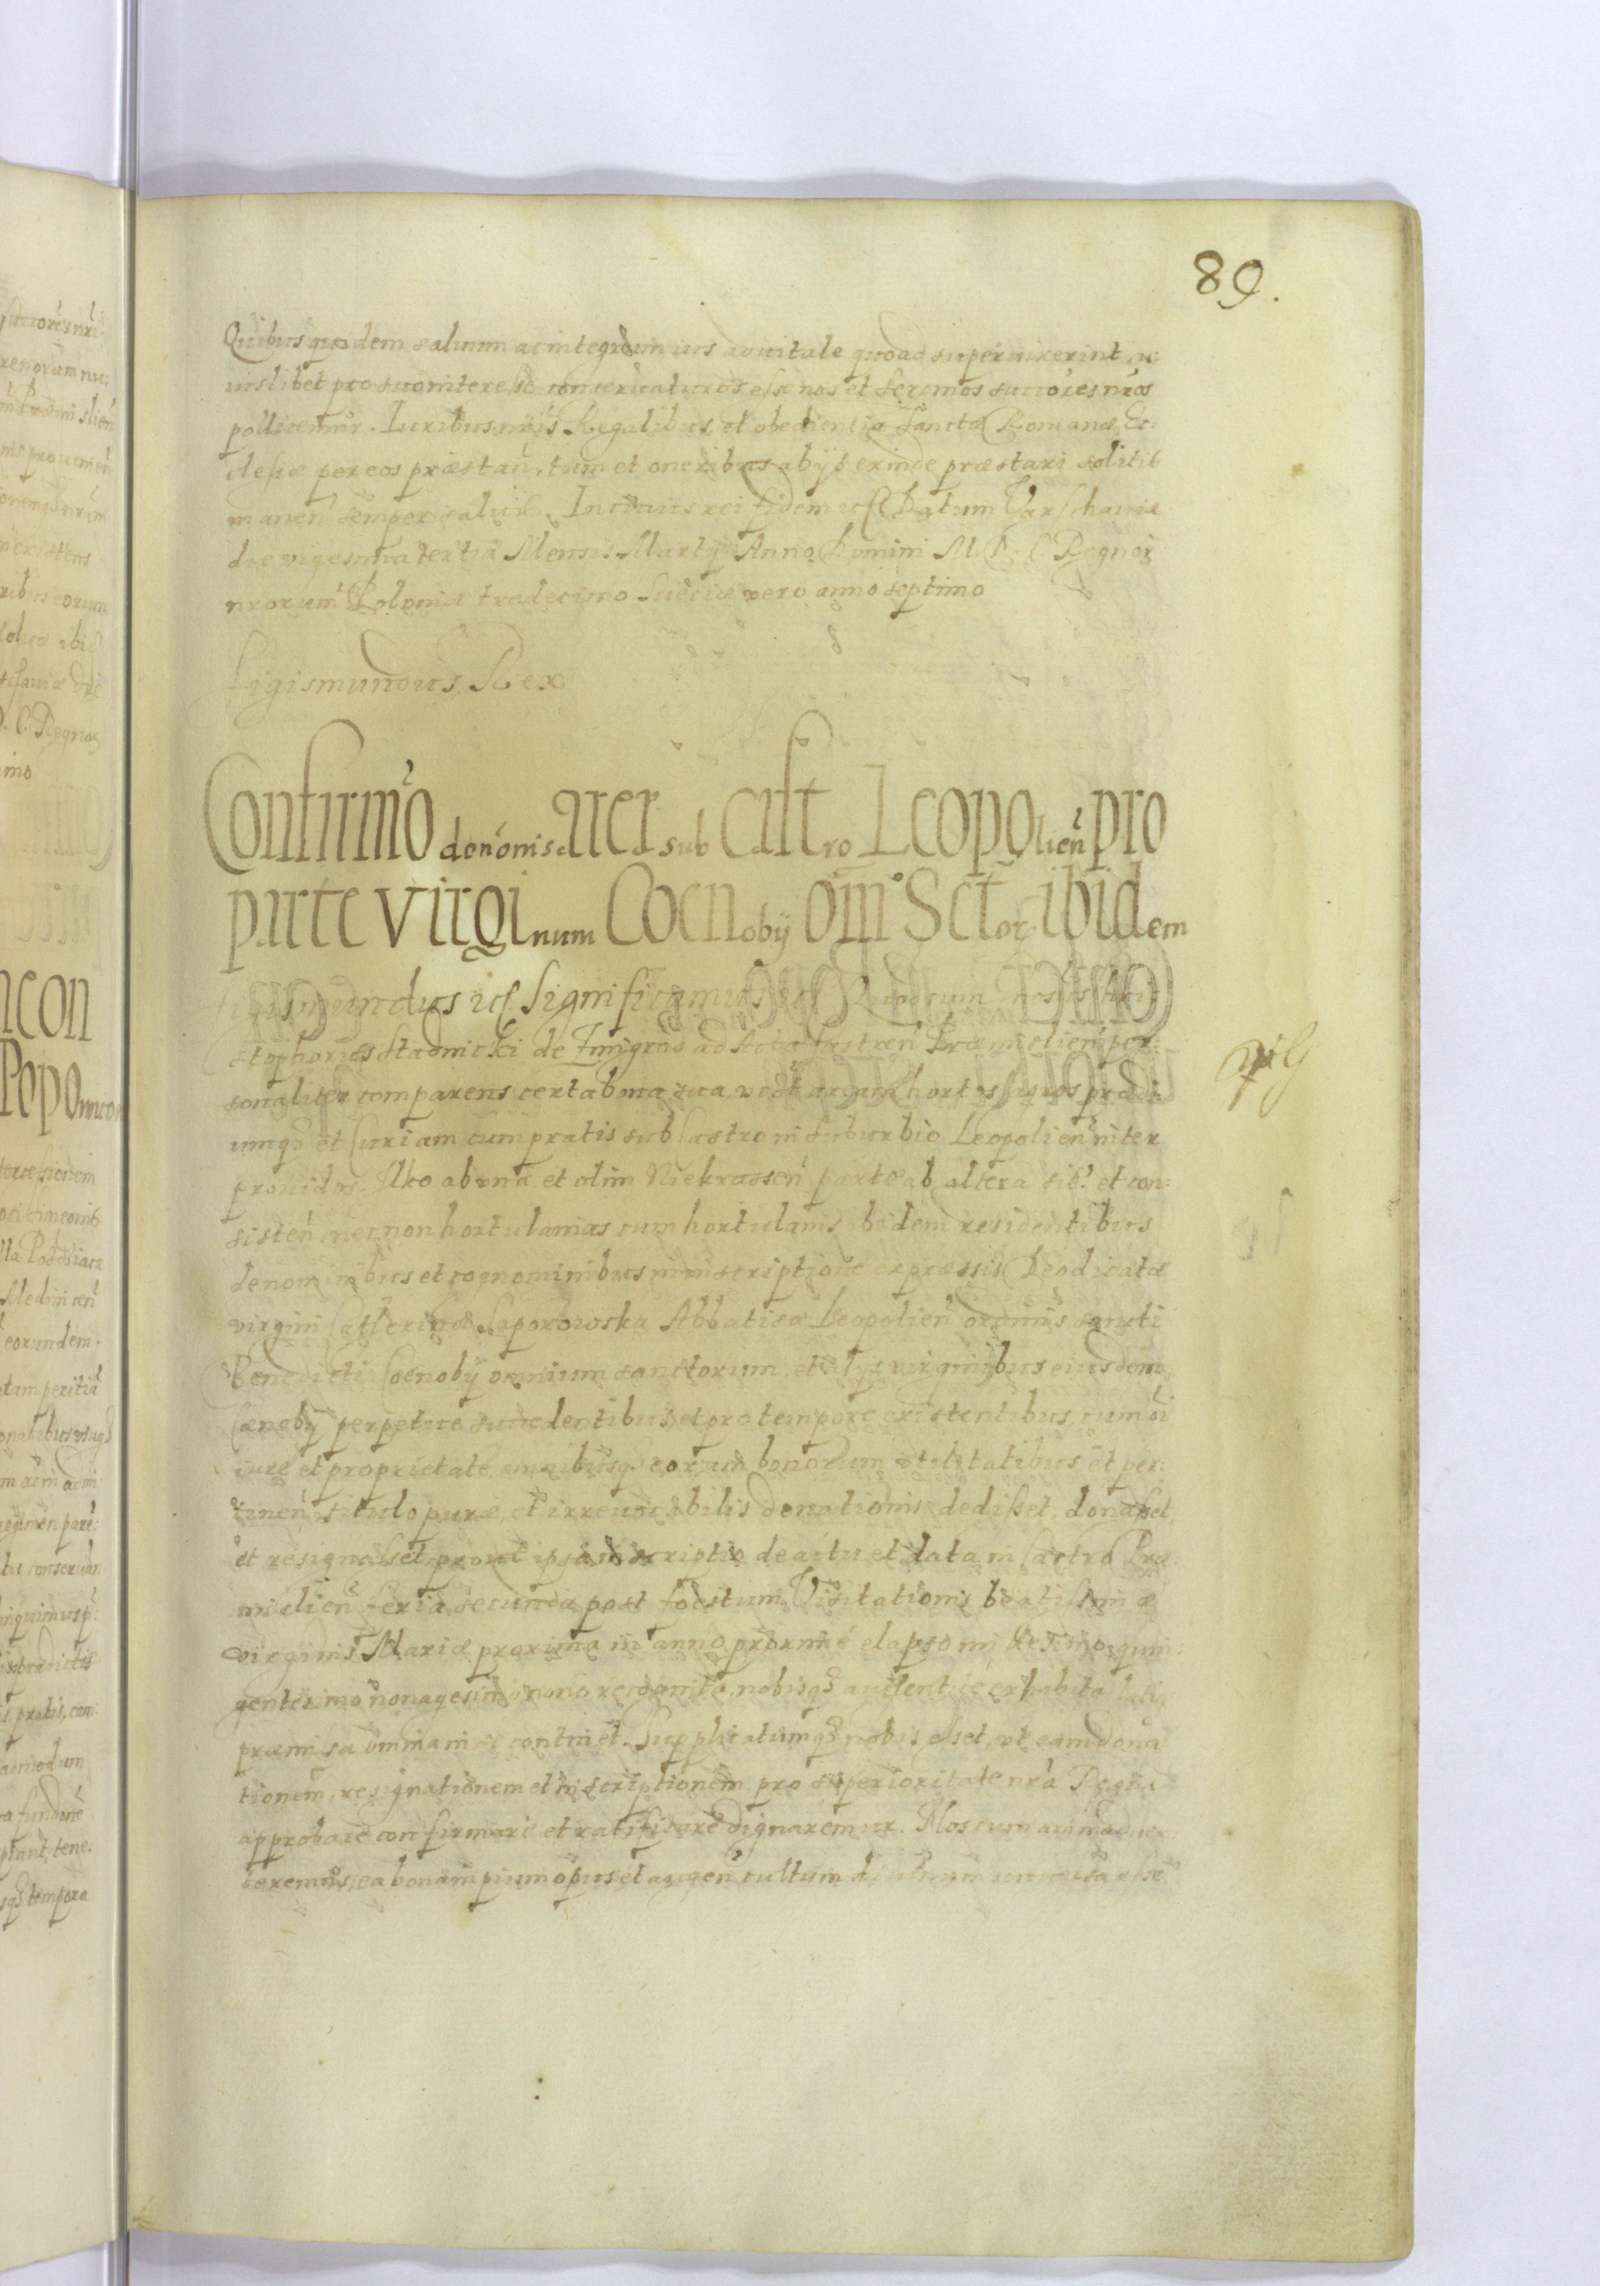 89.
Quibus quidem saluum ac integrum ius aduitale quoad superuixerint cu:
iuslibet pro suo interesse conseruaturos esse nos et Sermos succores nros
pollicemur. Iuribus nris Regalibus et obedientia Sanctæ Romanæ Ec:
clesiæ per eos præstan, tum et oneribus abijs exinde præstari solitis
manen semper saluis. In cuius rei fidem Datum Varschauiæ
die vigesima tertia Mensis Martij Anno Domini M. D. C. Regnor
nrorum Poloniæ tredecimo Sueciæ vero anno septimo
Sigismundus Rex
Confirmo dononis arer sub castro Leopolien pro
parte virginum Coenobij om Sctor ibidem
Sigismundus Significamus Quod cum nosus Chri:
stophorus Stadnicki de Zmigrod ad Acta castren Præmislien per:
sonaliter comparens certa bona sua, vdt aream hortos agros prædi:
umqз et Curiam cum pratis sub Castro in Suburbio Leopolien inter
prouidos Ilko ab vna et olim Niekrassen parte ab altera sit et con:
sisten necnon hortulanias cum hortulanis ibidem residentibus
de nominibus et cognominibus in inscriptione expressis Deodicatæ
virgini Catherinæ Saporowska Abbatissæ Leopolien ordinis sancti
Benedicti Coenobij omnium sanctorum, et alijs virginibus eiusdem
Cænobij perpetuo succedentibus et pro tempore existentibus, cum oi
iure et proprietate omnibusq eorum bonorum vtilitatibus et per:
tinen titulo puræ et irreuocabilis donationis dedisset, donasset
et resignasset prout ipsa inscriptio de actu et data in Castro Præ:
mislien feria secunda post foestum Visitationis beatissimæ
virginis Mariæ proxima in anno proxime elapso millesimo quin:
gentesimo nonagesimo nono nobisqз autentice exhibita
præmissa omnia in se continet. Supplicatumqз nobis esset, vt eam dona
tionem, resignationem et inscriptionem pro superioritate nra Regia
approbare confirmare et ratificare dignaremur. Nos cum animaduer
teremus, ea bonam pium opus et augen cultum esse